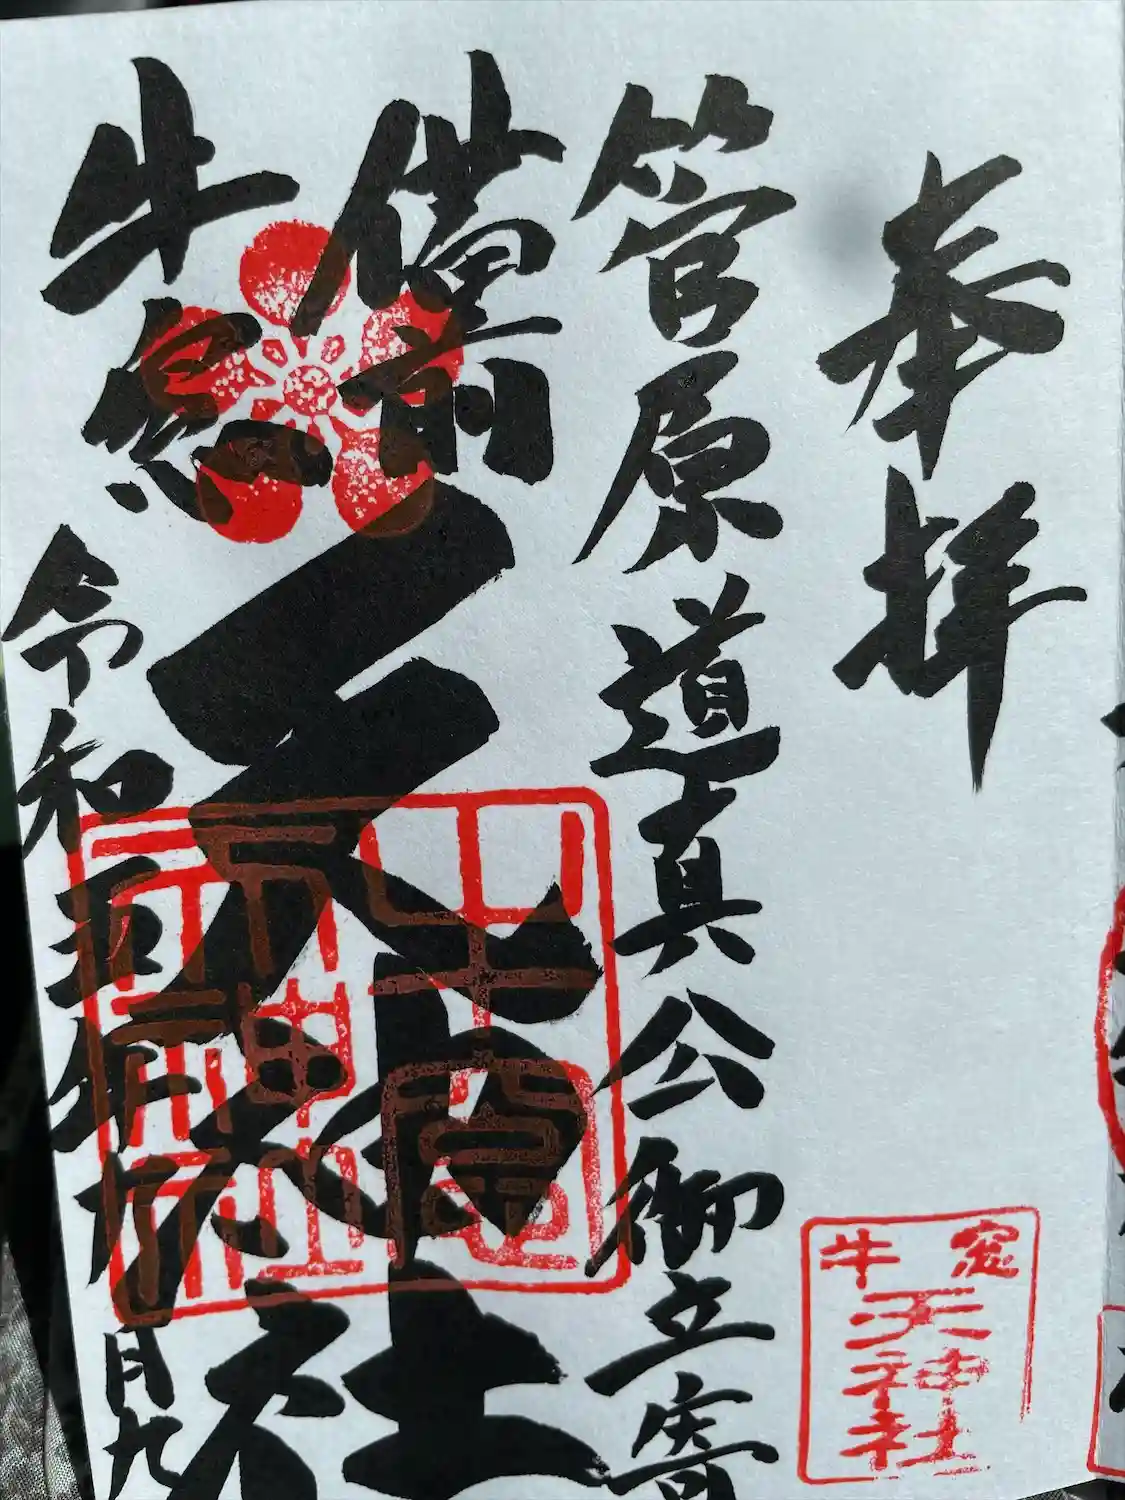 奉拝
管原道真公御立寄
備前
牛窓
天神社
令和五年
月九
牛窓
天神社